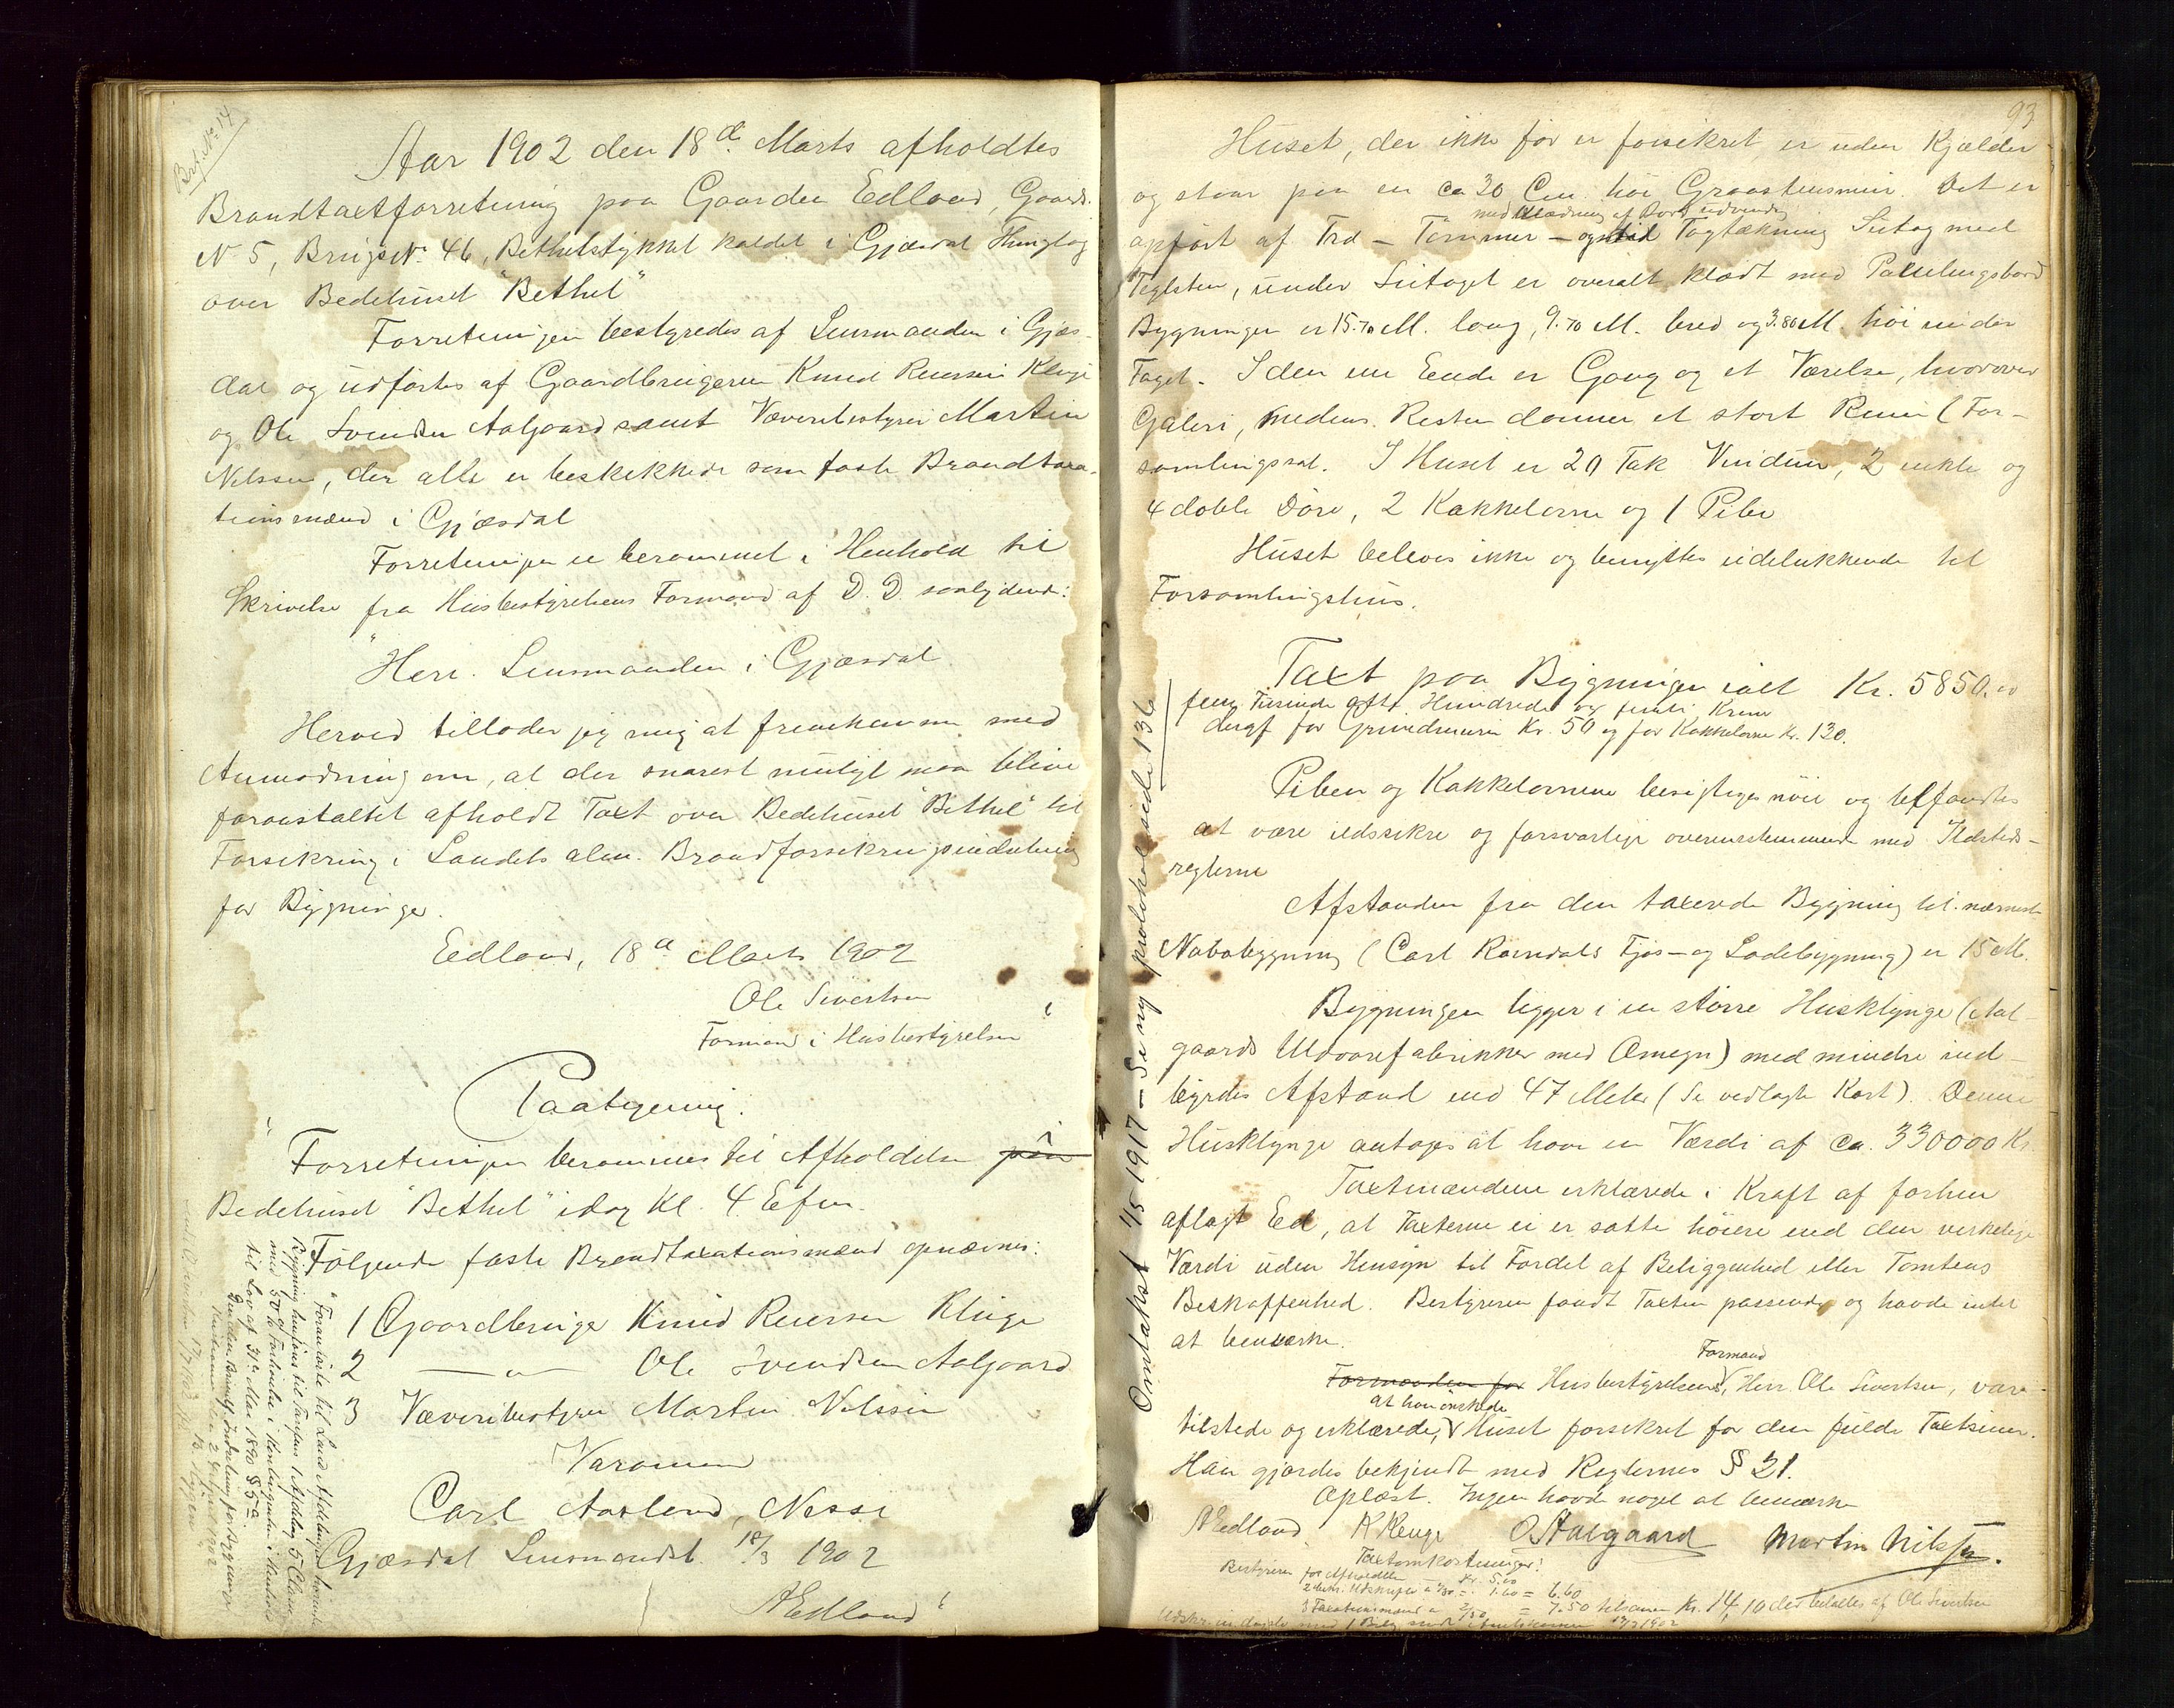 Brf. No 14
Aar 1902 den 18de Marts afholdtes
Brandtaxtforretning paa Gaarden Edland, Gaards
N 5, Brugs No 46, Bethelstykket kaldet i Gjæsdal Thinglag
over Bedehuset "Bethel"
Forretningen bestyredes af Lensmanden i Gjæs-
dal og udførtes af Gaardbrugerne Knud Reiersen Kluge
og Ole Svendsen Aalgaard samt Væveribestyrer Martin
Nilssen, der alle er beskikkede som faste Brandtaxa-
tionsmænd i Gjæsdal
Forretningen er berammet i Henhold til
Skrivelse fra Husbestyrelsens Formand af D. D. saalydende:
"Herr. Lensmanden i Gjæsdal
Herved tillader jeg mig at fremkomme med
Anmodning om, at der snarest muligt maa blive
foranstaltet afholdt Taxt over Bedehuset "Bethel" til
Forsikring i Landets alm. Brandforsikringsindretning
for Bygninger.
Edland, 18de Marts 1902
Ole Sivertsen
Formand i Husbestyrelsen"
Paategning.
"Forretningen berammes til Afholdelse paa i
Bedehuset "Bethel" idag Kl. 4 Efm.
Følgende faste Brandtaxationsmænd opnævnes:
1 Gaardbruger Knud Reiersen Kluge
2 —"— Ole Svendsen Aalgaard
3 Væveribestyrer Martin Nilssen
Varamænd
Carl Aasland, Nesse
Gjæsdal Lensmandsb. 18/3 1902
AEdland"
"Foranførte til Land Afdelingen hørende
Bygning henføres til Tarifens 1 Afdeling 5 Classe
med 50 % Forhøielse i Kontingenten i Henhold
til Lov af 31te Mai 1890 § 5 a
Den alm. Brandf. Indretning for Bygninger
Kristiania den 2 April 1902
93
Huset, der ikke før er forsikret, er uden Kjælder
og staar paa en ca 30 Cm. høi Graastensmur. Det er
med Klædning af Bord udvendig
opført af Træ – Tømmer – og med Tagtækning Sutag med
Teglsten, under Sutaget er overalt klædt med Pannelingsbord
Bygningen er 15.70 M. lang, 9.70 M. bred og 3.80 M. høi under
Taget. I den ene Ende er Gang og et Værelse, hvorover
Galeri, medens Resten danner et stort Rum (For-
samlingssal. I Huset er 20 Fak Vinduer, 2 enkle og
4 doble Døre, 2 Kakkelovne og 1 Pibe
Huset beboes ikke og benyttes udelukkende til
Forsamlingshus.
Taxt paa Bygningen ialt Kr. 5850.00
fem Tusinde otte Hundrede og femti Kroner
deraf for Grundmuren Kr. 50 og for Kakkelovne Kr. 130.
Piben og Kakkelovnene besigtiges nøie og befandtes
at være ildssikre og forsvarlige overensstemmende med Ildsteds-
reglerne
Afstanden fra den taxerede Bygning til nærmeste
Nabobygning (Carl Ravndals Fjøs- og Ladebygning) er 15 M.
Bygningen ligger i en større Husklynge (Aal-
gaards Uldvarefabrikker med Omegn) med mindre ind-
byrdes Afstand end 47 Meter (Se vedlagte Kart). Denne
Husklynge antages at have en Værdi af ca. 330000 Kr.
Taxtmændene erklærede i Kraft af forhen
aflagt Ed, at Taxterne ei er satte høiere end den virkelige
Værdi uden Hensyn til Fordel af Beliggenhed eller Tomtens
Beskaffenhed. Bestyreren fandt Taxten passende og havde intet
at bemærke.
Formand
Formanden for Husbestyrelsens, Herr Ole Sivertsen, var
at han ønskede
tilstede og erklærede, Huset forsikret for den fulde Taxtsum.
Han gjordes bekjendt med Reglernes § 21.
Oplæst. Ingen havde noget at bemærke
AEdland K Kluge O. Aalgaard Martin Nilssen.
Taxtomkostninger:
Bestyreren for Afholdelse Kr. 5.00
2 bekr. Udskrifter a 0/80 = 1.60 = 6.60
3 Taxationsmænd a 2/50 = 7.50 tilsammen Kr. 14,10 der betaltes af Ole Sivertsen
Omtakst 1/5 1917 – Se ny protokol side 136